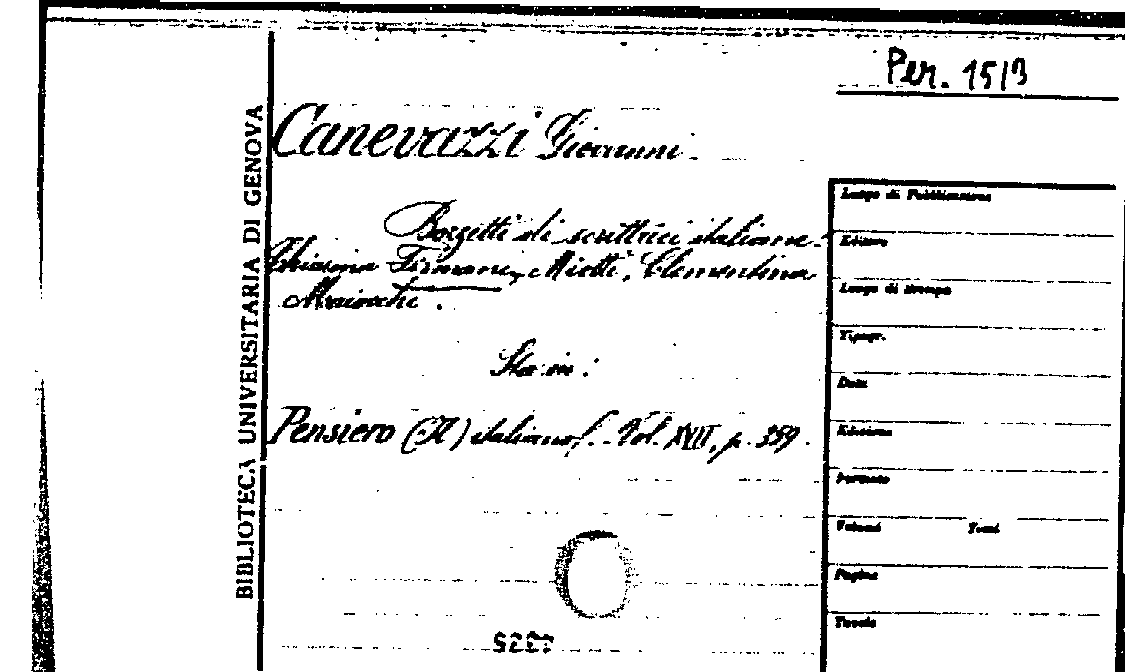 Per. 15/3
BIBLIOTECA UNIVERSITARIA DI GENOVA
Canevazzi Giovanni
Bozzetti di scrittrici italiane.
Firmani, Miotti, Clementina
Sta in:
Pensiero (Il) italiano. Vol. XVII, p. 359.
Luogo di Pubblicazione
Editore
Luogo di stampa
Tipogr.
Data
Edizione
Formato
Volumi Tomi
Pagine
Tavole